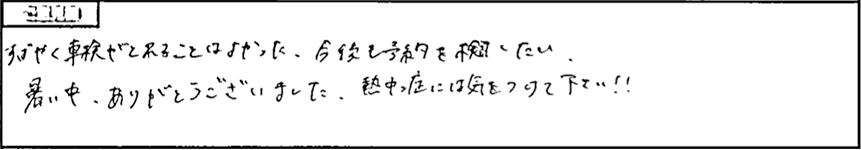 すばやく車検がとれることはよかった、今後も予約を検討したい、
暑い中、ありがとうございました、熱中症には気をつけて下さい!!